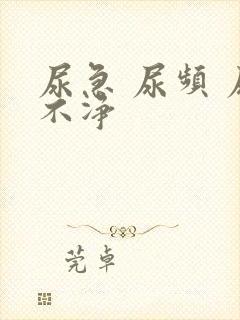 尿急 尿頻
不淨
莞卓